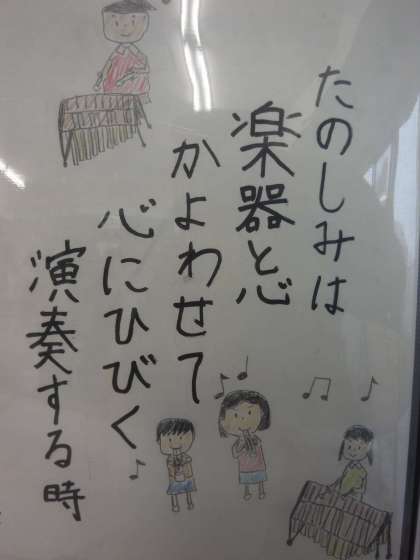 たのしみは
楽器と心
かよわせて
心にひびく
演奏する時